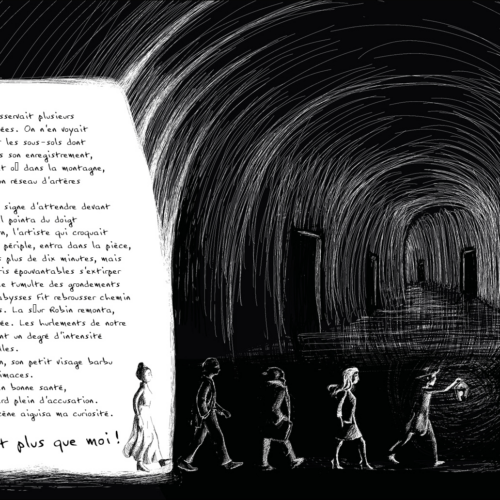 sservait plusieurs
ées. On n'en voyait
t les sous-sols dont
s son enregistrement,
t o▯ dans la montagne,
n réseau d'artères
signe d'attendre devant
l pointa du doigt
n, l'artiste qui croquait
périple, entra dans la pièce,
s plus de dix minutes, mais
ris épouvantables s'extirper
e tumulte des grondements
abysses Fit rebrousser chemin
s. La s▯ur Robin remonta,
ée. Les hurlements de notre
nt un degré d'intensité
lles.
n, son petit visage barbu
imaces.
en bonne santé,
ard plein d'accusation.
cène aiguisa ma curiosité.
t plus que moi !